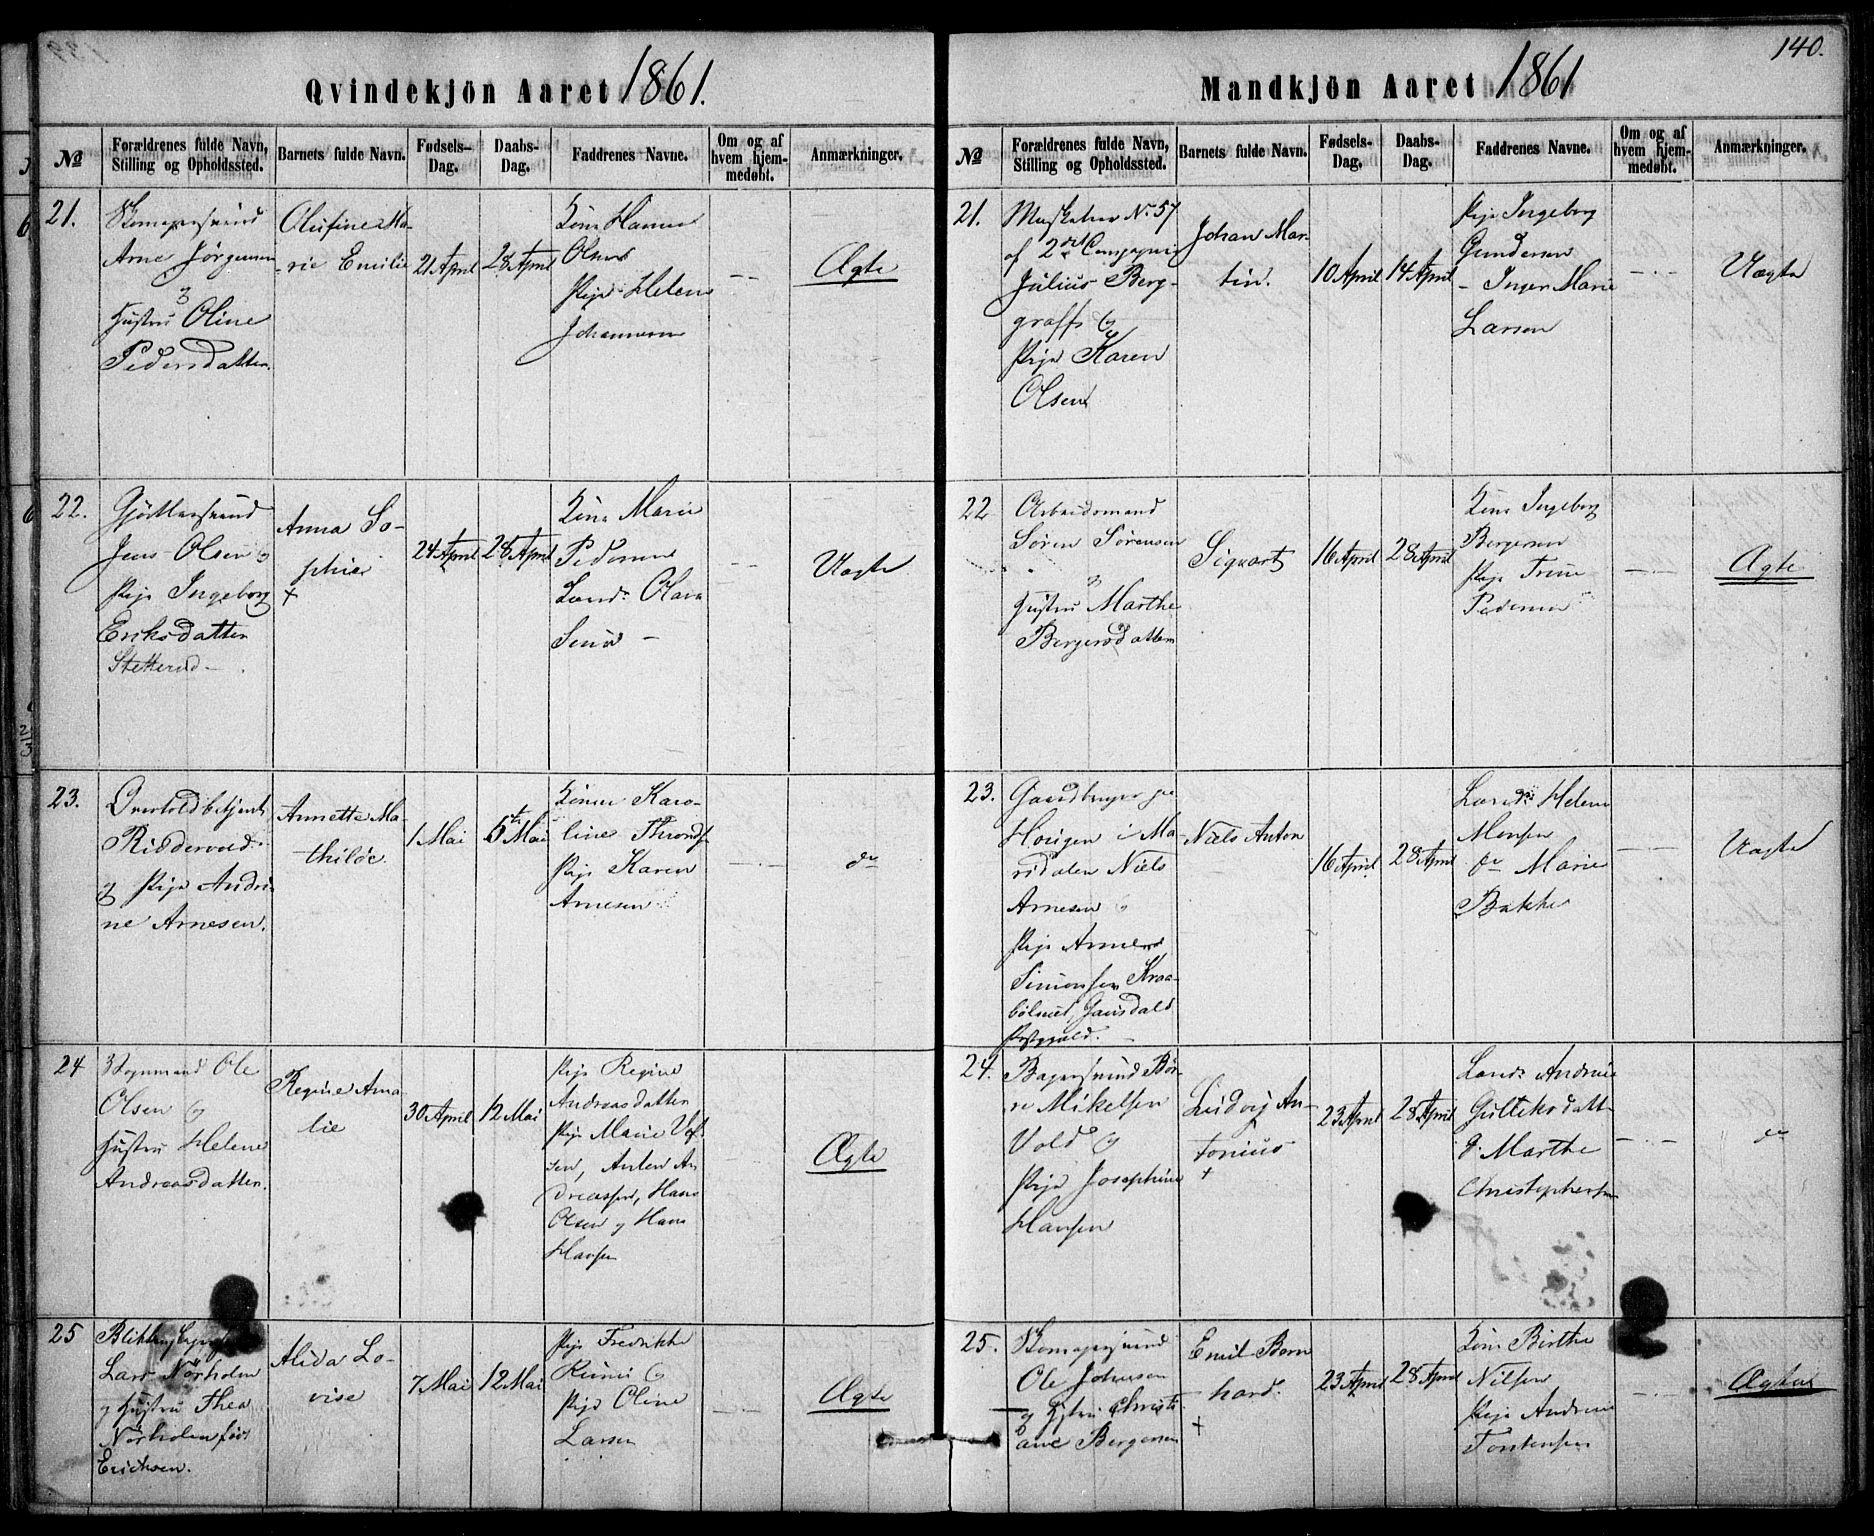 140.
Qvindekjön Aaret 1861.
No
Forældrenes fulde Navn, Stilling og Opholdssted.
Barnets fulde Navn.
Fødsels-Dag.
Daabs-Dag.
Faddrenes Navne.
Om og af hvem hjemmedøbt.
Anmærkninger.
21.
Skomagersvend
Arne Jörgensen
&
Hustru Oline
Pedersdatter.
Olufine Ma-
rie Emilie
21 April
28 April
Kone Hanna
Olsen
Pige Helene
Johannesen
Ægte
22.
Gjörtlersvend
Jens Olsen og
Pige Ingeborg
Eriksdatter
Anna So-
phie
+
24 April
28 April
Kone Marie
Pedersen
Uægte
23.
Overtoldbetjent
Riddervold
og Pige Andri-
ne Arnesen.
Annette Ma-
thilde.
1 Mai
5te Mai
Konen Karo-
line Throndsn
Pige Karen
Arnesen
do
24
Vognmand Ole
Olsen og
Hustru Helene
Andreasdatter.
Regine Ama
lie
30 April
12 Mai
Pige Regine
Andreasdatter
Pige Marie
Anton An
dreassen, Hans
Olsen og Hans
Hansen
Ægte
25
Lars Nörholm
og Hustru Thea
Nörholm född
Ericksen.
Alida Lo-
vise
7 Mai
12 Mai
Pige Fredrikke
Pige Oline
Larsen
Ægte
Mandkjön Aaret 1861
No
Forældrenes fulde Navn, Stilling og Opholdssted.
Barnets fulde Navn.
Fødsels-Dag.
Daabs-Dag.
Faddrenes Navne.
Om og af hvem hjemmedøbt.
Anmærkninger.
21.
Musketeer No 57
af 2det Compagni
Julius Berg-
graff og
Pige Karen
Olsen
Johan Mar-
tin.
10 April
14 April
Pige Ingeborg
Gundersen
- Inger Marie
Larsen
Uægte
22
Arbeidsmand
Sören Sörensen
&
Hustru Marthe
Bergersdatter
Siquart
16 April
28 April
Kone Ingeborg
Bergersen
Pige Trine
Pedersen
Ægte
23.
Gaardbruger paa
i Ma-
ridalen Niels
Arnesen og
Pige Anne
Simonsen Kraa-
bölmet, Gausdals
Prstgjæld.
Niels Anton
16 April
28 April
Helene
Monsen
do Marie
Bakke
Uægte
24.
Bagersvend Bör-
re Mikelsen
Vold og
Pige Josephine
Hansen
Ludvig An-
tonius
+
23 April
28 April
Andrine
Gulliksdatt
do Marthe
Christophersen
do
25.
Skomagersvend
Ole Johnsen
og Hustru Christi
ane Bergersen
Emil Bern
hard.
+
23 April
28 April
Kone Birthe
Nilsen
Pige Andrine
Torstensen
Ægte